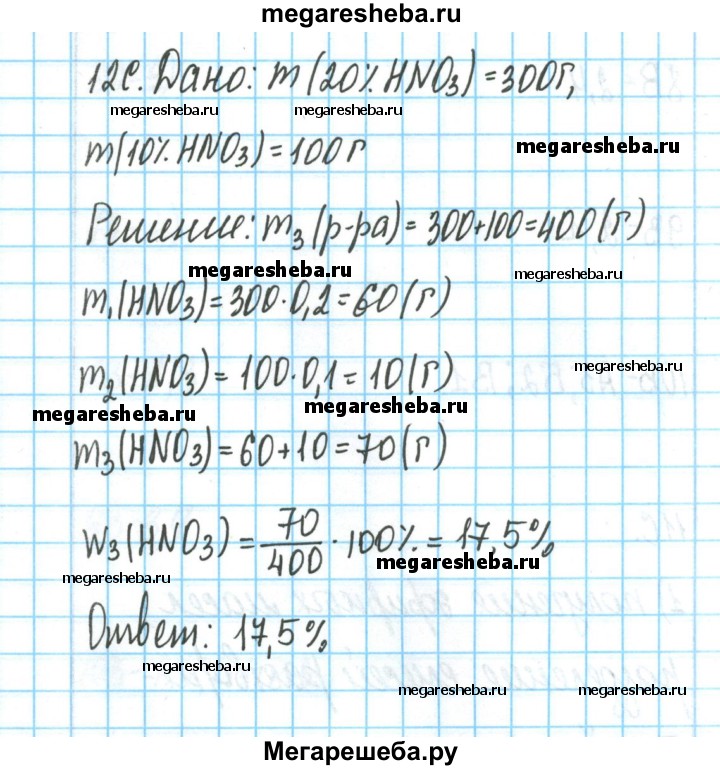 megaresheba.ru
12С. Дано: m(20% HNO3) = 300г,
megaresheba.ru megaresheba.ru
m(10% HNO3) = 100г
megaresheba.ru
Решение: m3(р-ра) = 300+100=400(г)
megaresheba.ru megaresheba.ru
m1(HNO3) = 300·0,2 = 60(г)
megaresheba.ru
m2(HNO3) = 100·0,1 = 10(г)
megaresheba.ru megaresheba.ru
m3(HNO3) = 60+10 = 70(г)
w3(HNO3) = 70/400 · 100% = 17,5%
megaresheba.ru megaresheba.ru
Ответ: 17,5%
megaresheba.ru
megaresheba.ru megaresheba.ru
Мегарешеба.ру